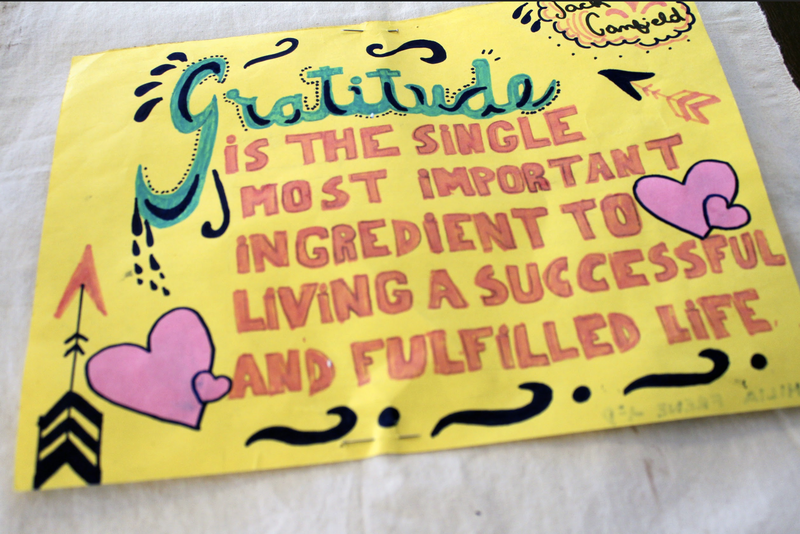 Jack
Canfield
Gratitude
iS THE SiNGLE
MOST iMPORTANT
iNGREDiENT TO
LiViNG A SUCCESSFUL
AND FULFiLLED LiFE